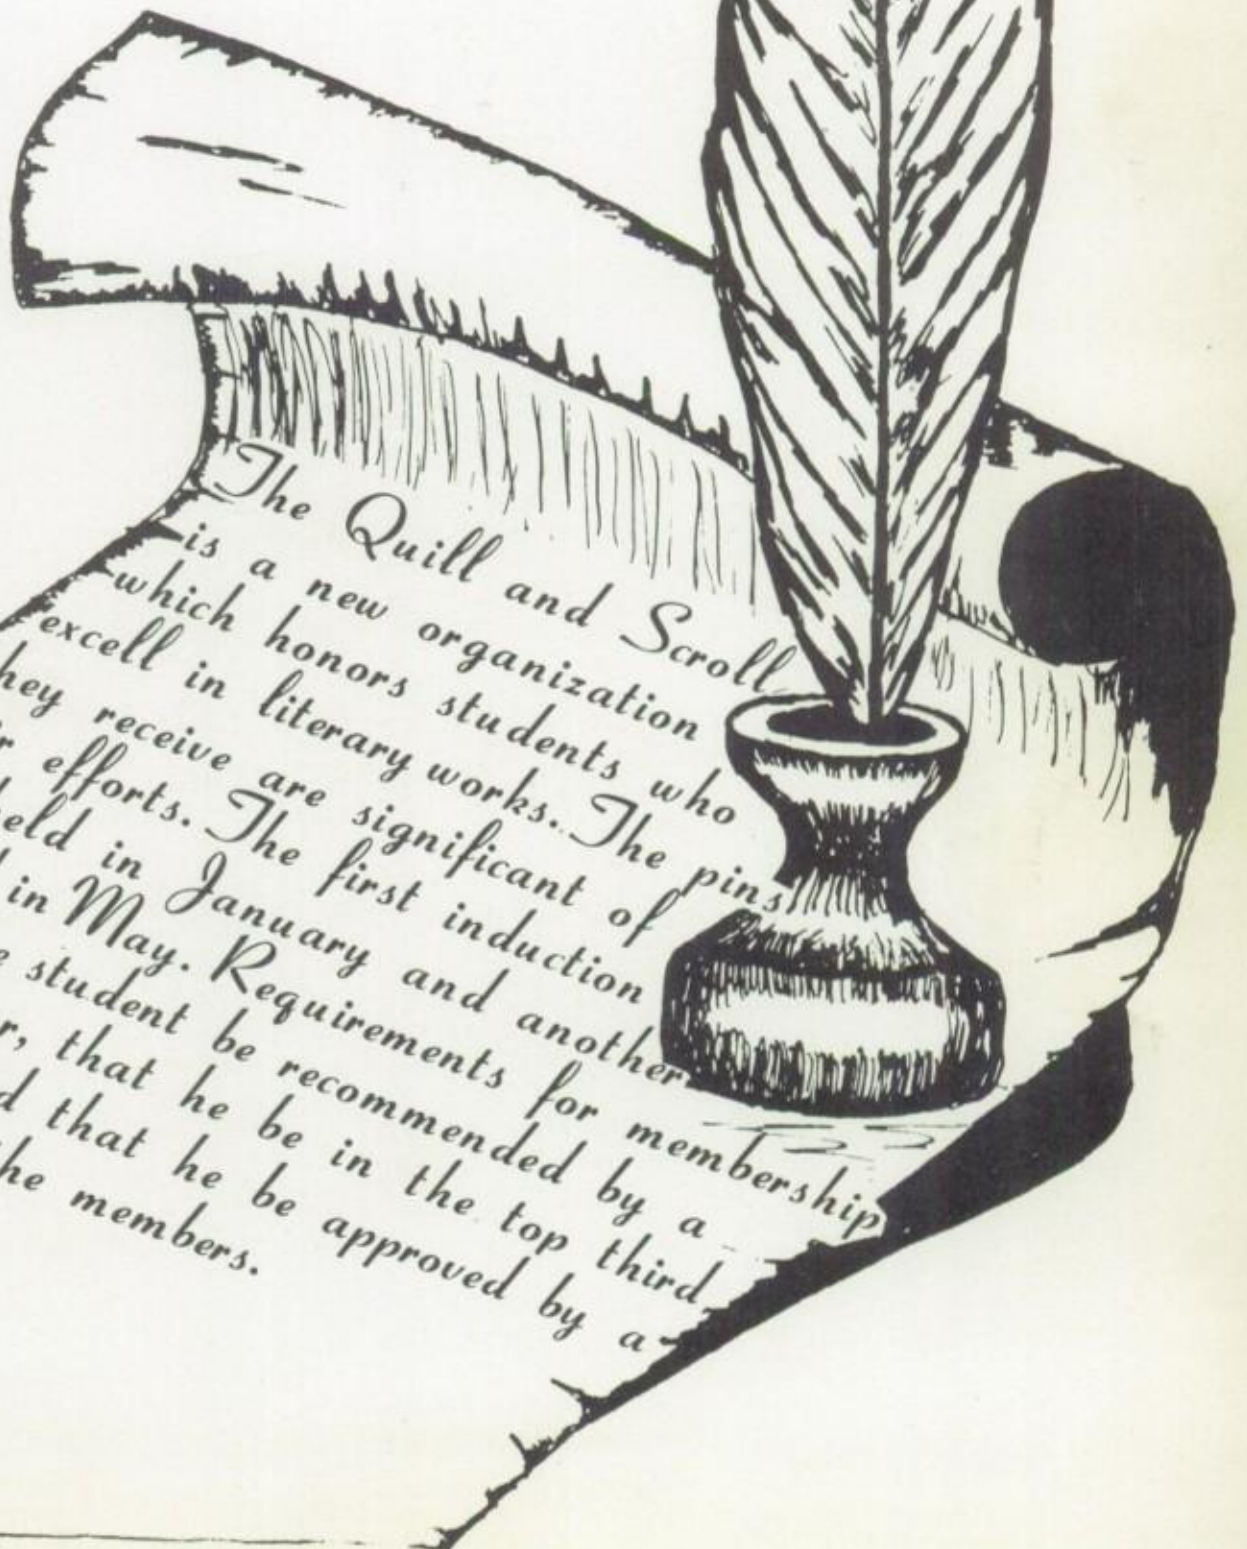 The Quill and Scroll
is a new organization
which honors students who
excell in literary works. The pins
hey receive are significant of
r efforts. The first induction
eld in January and another
in May. Requirements for membership
e student be recommended by a
r, that he be in the top third
d that he be approved by a
he members.